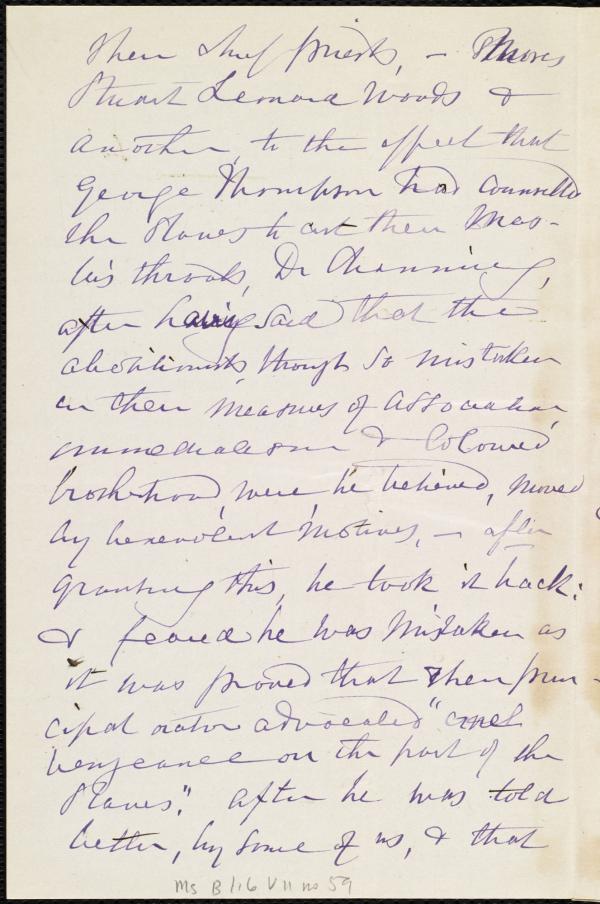 their chief priests, — Moses
Stuart Leonard Woods &
another, to the effect that
George Thompson had counselled
the slaves to cut their mas-
ters throats, Dr Channing,
after having said that the
abolitionists, though so mistaken
in their measures of association,
immediatism & coloured
brotherhood, were, he believed, moved
by benevolent motives, — after
granting this, he took it back:
& feared he was mistaken as
it was proved that their prin-
cipal orator advocated "cruel
vengeance on the part of the
slaves". After he was told
better, by some of us, & that
Ms B 1.6 V 11 no 59